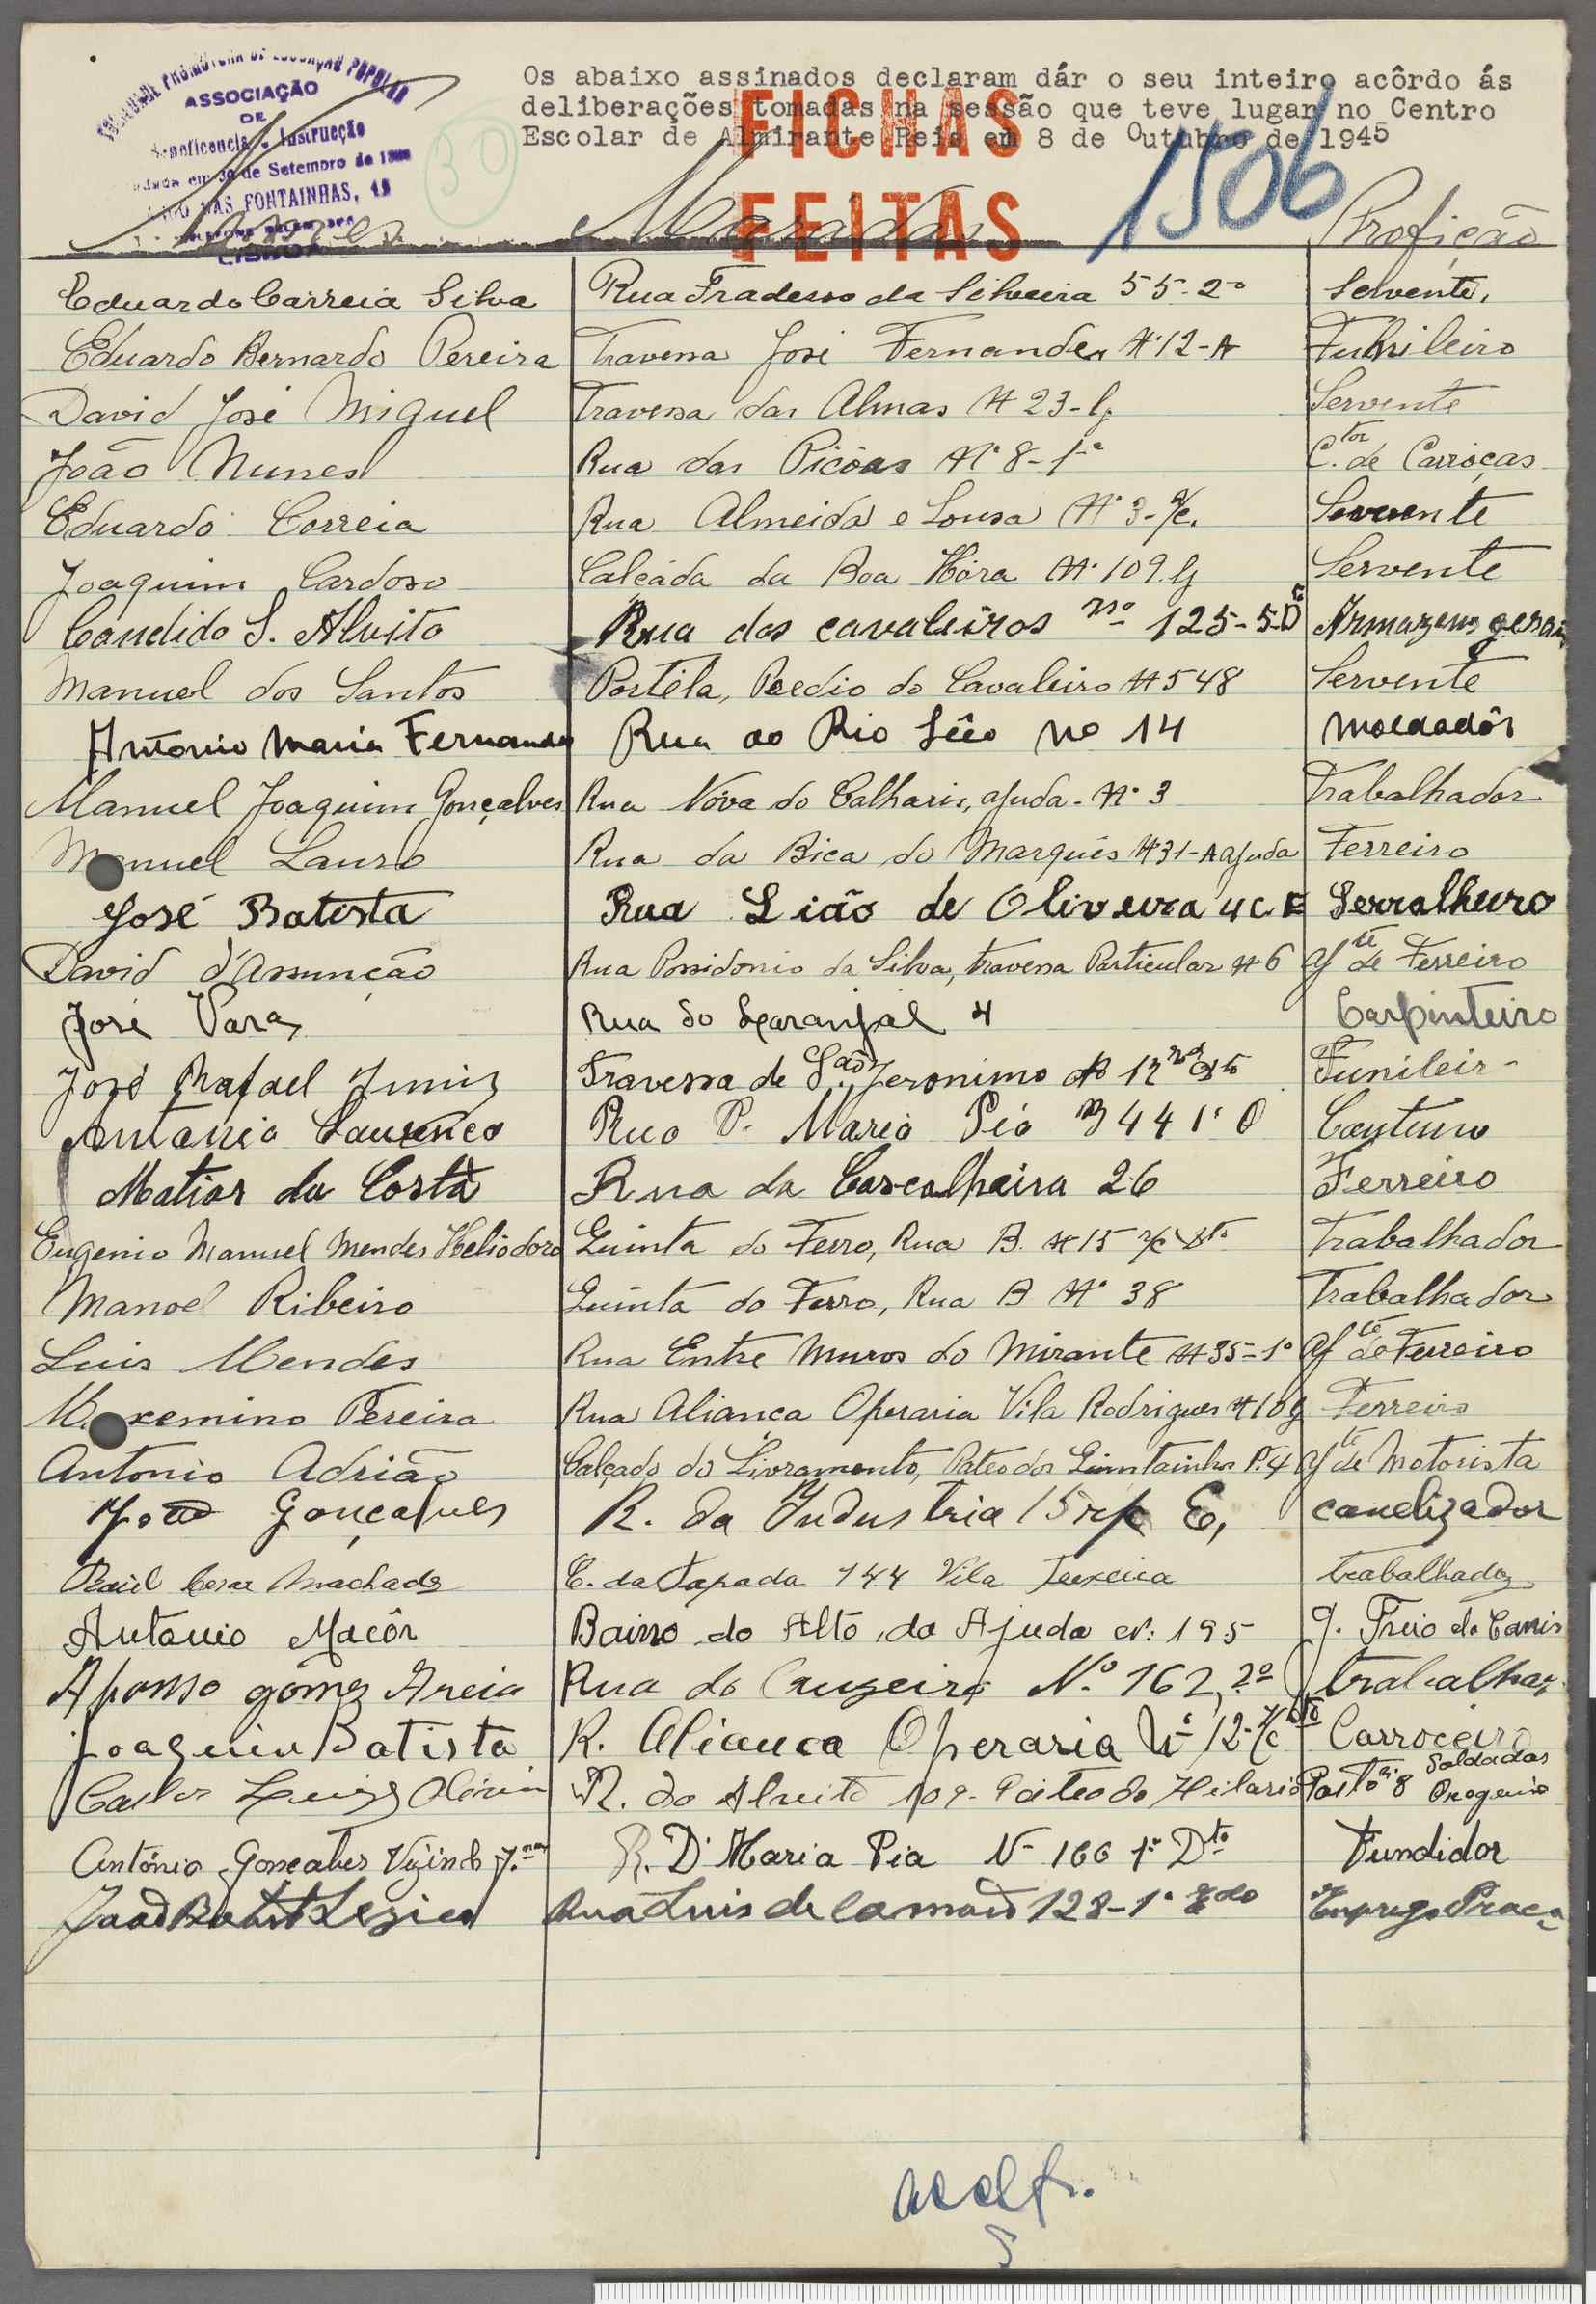 SOCIEDADE PROMOTORA DE EDUCAÇÃO POPULAR
ASSOCIAÇÃO
DE
Beneficencia e Instrucção
em 30 de Setembro de
DAS FONTAINHAS, 19
LISBOA
39
Os abaixo assinados declaram dár o seu inteiro acôrdo ás
deliberações tomadas na sessão que teve lugar no Centro
Escolar de Almirante Reis em 8 de Outubro de 1945
FICHAS
FEITAS
1506
Nomes Moradas Profição
Eduardo Carreia Silva Rua Fradesso da Silveira 55-2º Servente,
Eduardo Bernardo Pereira Travessa José Fernandes Nº 12-A Funileiro
David José Miguel Travessa das Almas Nº 23-
João Nunes Rua das Picôas Nº 8-1º C.tor de Carroças
Servente
Eduardo Correia Rua Almeida e Sousa Nº 3-r/c. Servente
Joaquim Cardoso Calçáda da Boa Hóra Nº 109 Servente
Candido S. Alvito Rua dos cavaleiros nº 125-5 Dº Armazens gerais
Manuel dos Santos Portéla, Predio do Cavaleiro Nº 548 Servente
Antonio Maria Fernandes Rua do Rio Sêco Nº 14 Moldadôr
Manuel Joaquim Gonçalves Rua Nóva do Calhariz, ajuda - Nº 3 Trabalhador
Manuel Lauro Rua da Bica do Marquês Nº 31-A ajuda Ferreiro
José Batista Rua Lião de Oliveira 4 C. E Serralheiro
David d'Assunção Rua Possidonio da Silva, travessa Particular Nº 6 Ajte de Ferreiro
José Varas Rua do Laranjal 4 Carpinteiro
José Rafael Travessa de São Jeronimo 12 Funileir-
Antonio Laurenço Rua D. Maria Pia 441º Contino
Matias da Costa Rua da Cascalheira 26 Ferreiro
Eugenio Manuel Mendes Heliodoro Quinta do Ferro, Rua B. Nº 15 r/c Dto Trabalhador
Manoel Ribeiro Quinta do Ferro, Rua B Nº 38 Trabalhador
Luis Mendes Rua Entre Muros do Mirante Nº 35-1º Ajte de Ferreiro
Maxemino Pereira Rua Aliança Operaria Vila Rodrigues Nº 10 Ferreiro
Antonio Adrião Calçada do Livramento, Pateo dos Quintainhos P. 4 Ajte de Motorista
João Gonçalves R. da Industria 15 r/c E, canelizador
Raúl Cesar Machado C. da Tapada 144 Vila Teixeira trabalhador
Antonio Maçôr Bairro do Alto da Ajuda Nº: 195 g. Freio de Carris
Afonso gomes Areia Rua do Cruzeiro Nº 162, 2º trabalhar
Joaquim Batista R. Aliança Operaria Nº 12-r/c Dto Carroceiro
Carlos R. do Alvito 109- Páteo do Hilario 8 Soldados
António Gonçalves J.nor R. Dª Maria Pia Nº 166 1º Dto Fundidor
João Batista Rua Luis de Camões 128-1º Praça